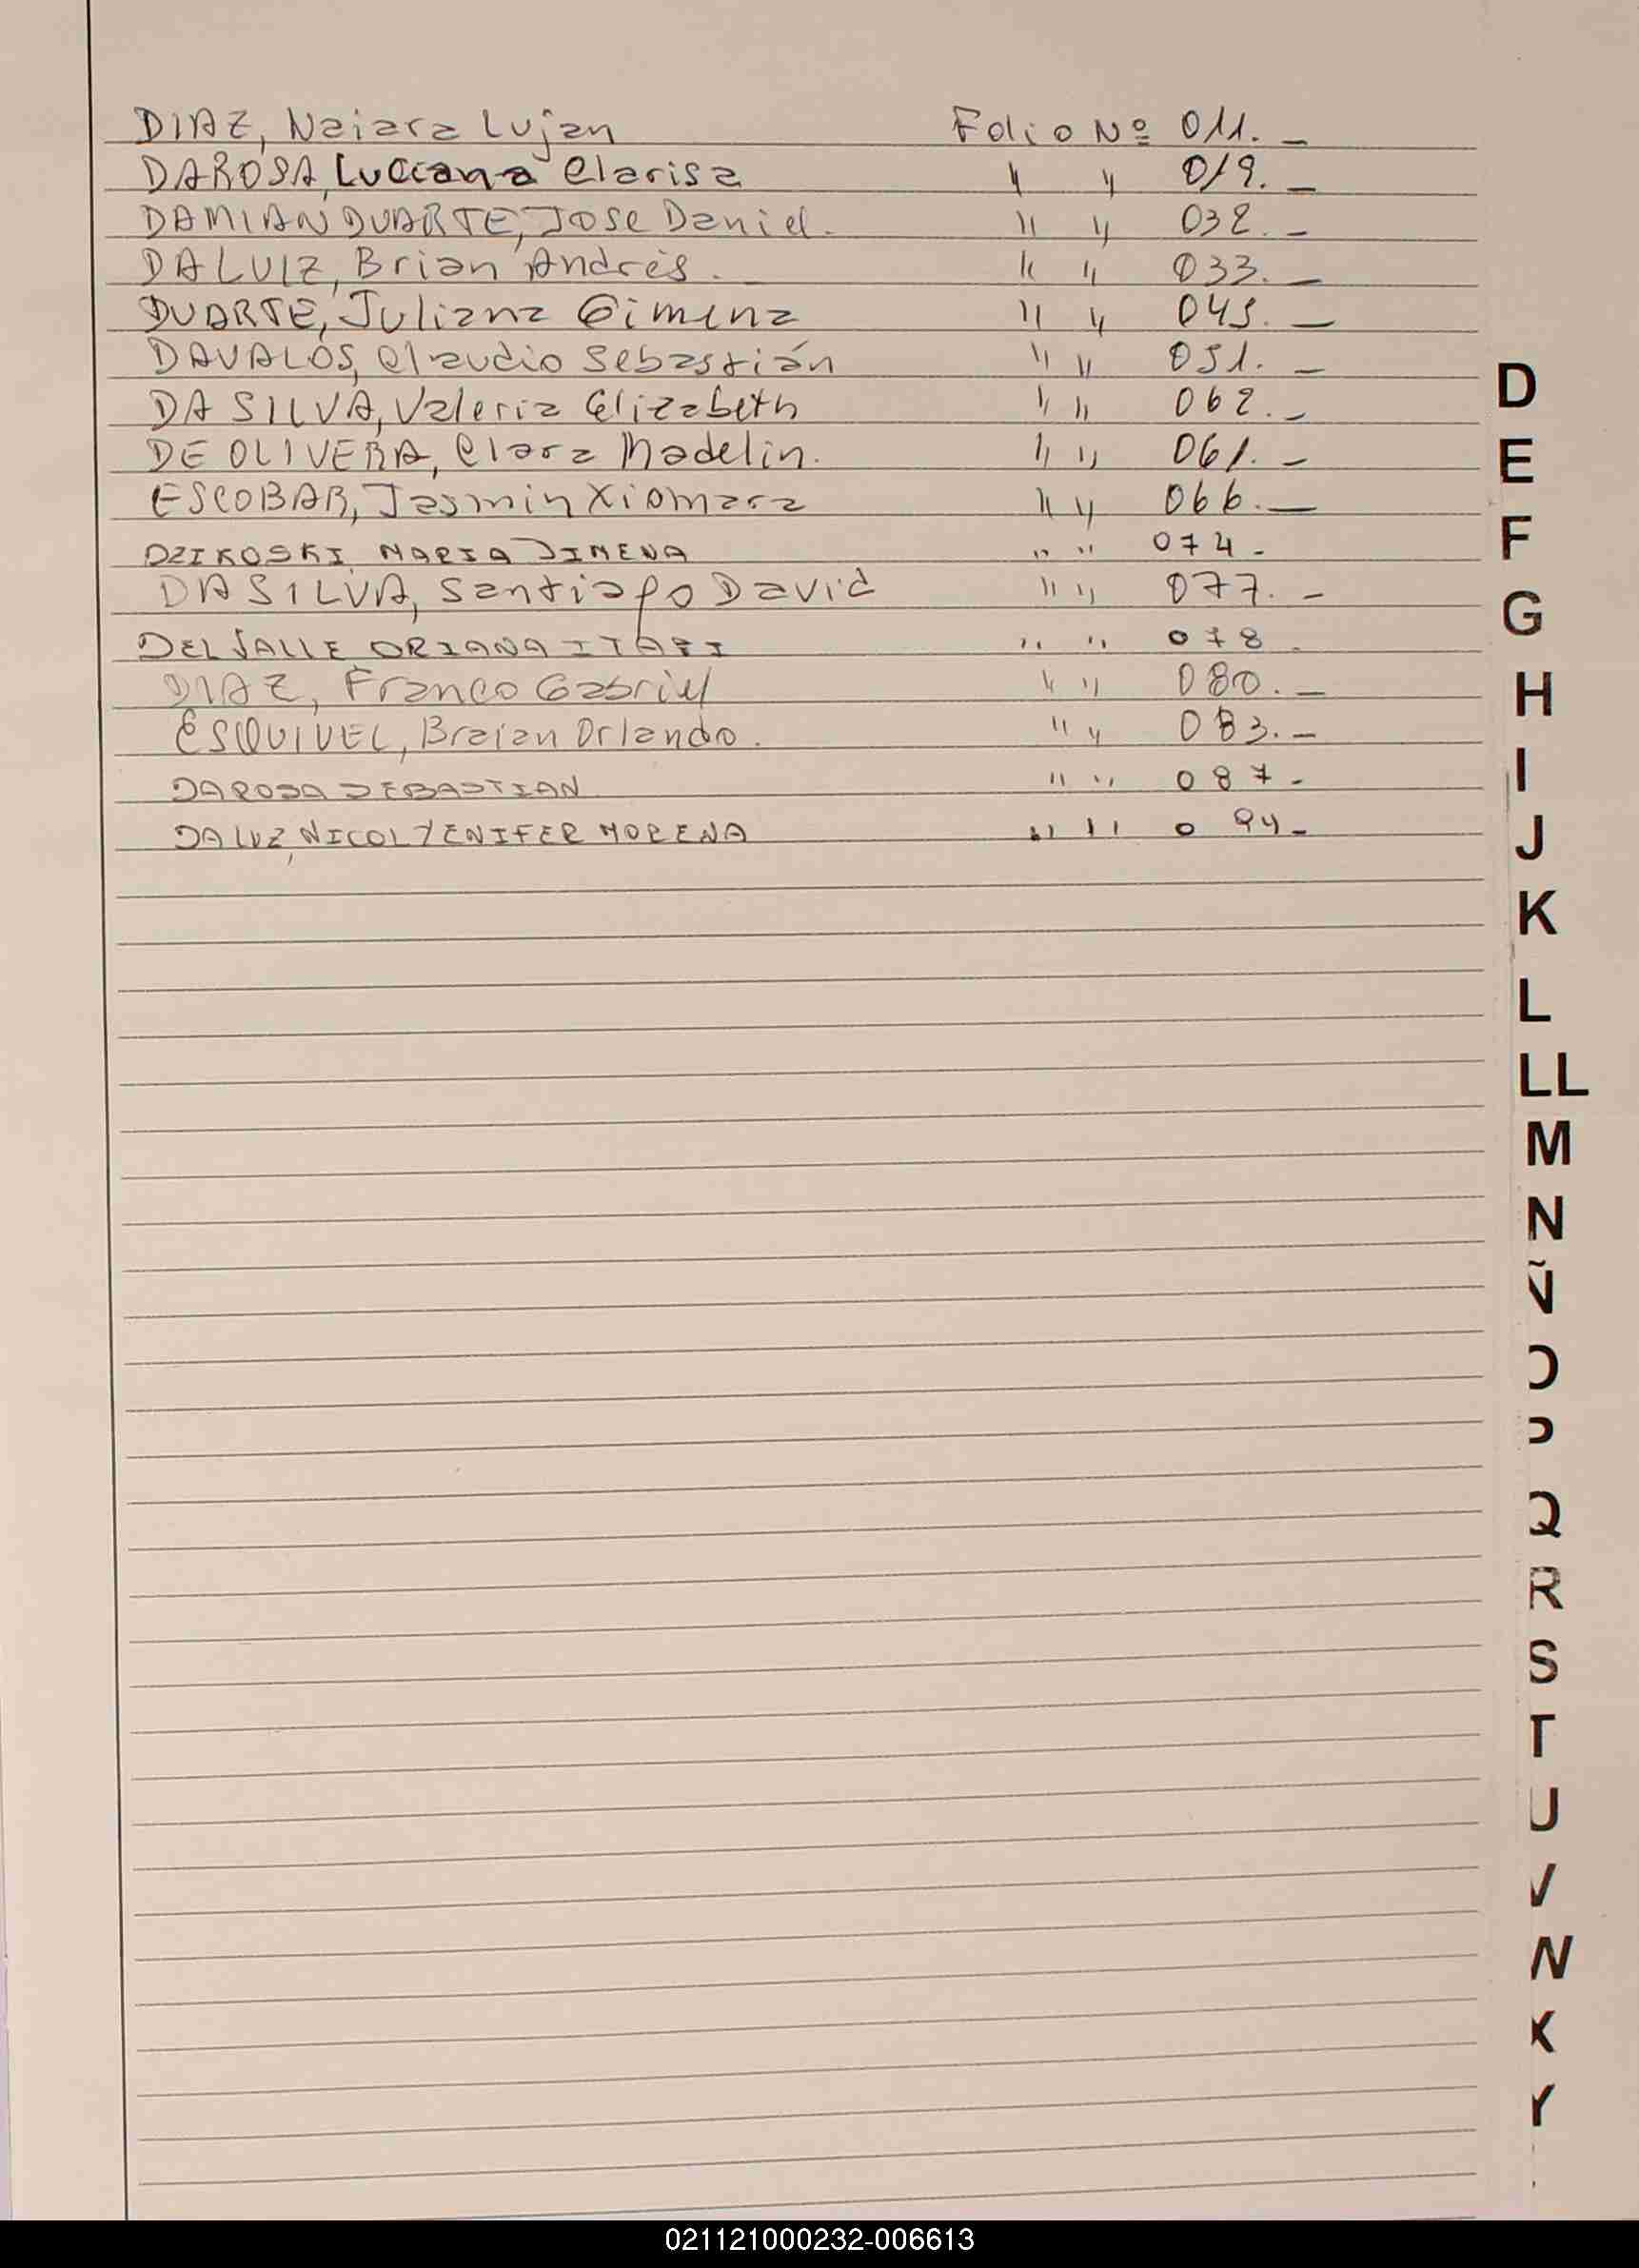 DIAZ, Naiara Lujan Folio Nº 011. -
DAROSA, Luciana Clarisa " " 019. -
DAMIAN DUARTE, Jose Daniel. " " 032. -
DA LUIZ, Brian Andrés. " " 033. -
DUARTE, Juliana Gimena " " 045. -
DAVALOS, Claudio Sebastián " " 051. -
DA SILVA, Valeria Elizabeth " " 062. -
DE OLIVERA, Clara Madelin. " " 061. -
ESCOBAR, Jasmin Xiomara " " 066. -
DZIKOSKI MARIA JIMENA " " 074 -
DA SILVA, Santiago David " " 077. -
DEL VALLE ORIANA ITATI " " 078 -
DIAZ, Franco Gabriel " " 080. -
ESQUIVEL, Braian Orlando. " " 083. -
DAROSA SEBASTIAN " " 087 -
DA LUZ, NICOL YENIFER MORENA " " 094 -
D
E
F
G
H
I
J
K
L
LL
M
N
Ñ
O
P
Q
R
S
T
U
V
W
X
Y
021121000232-006613